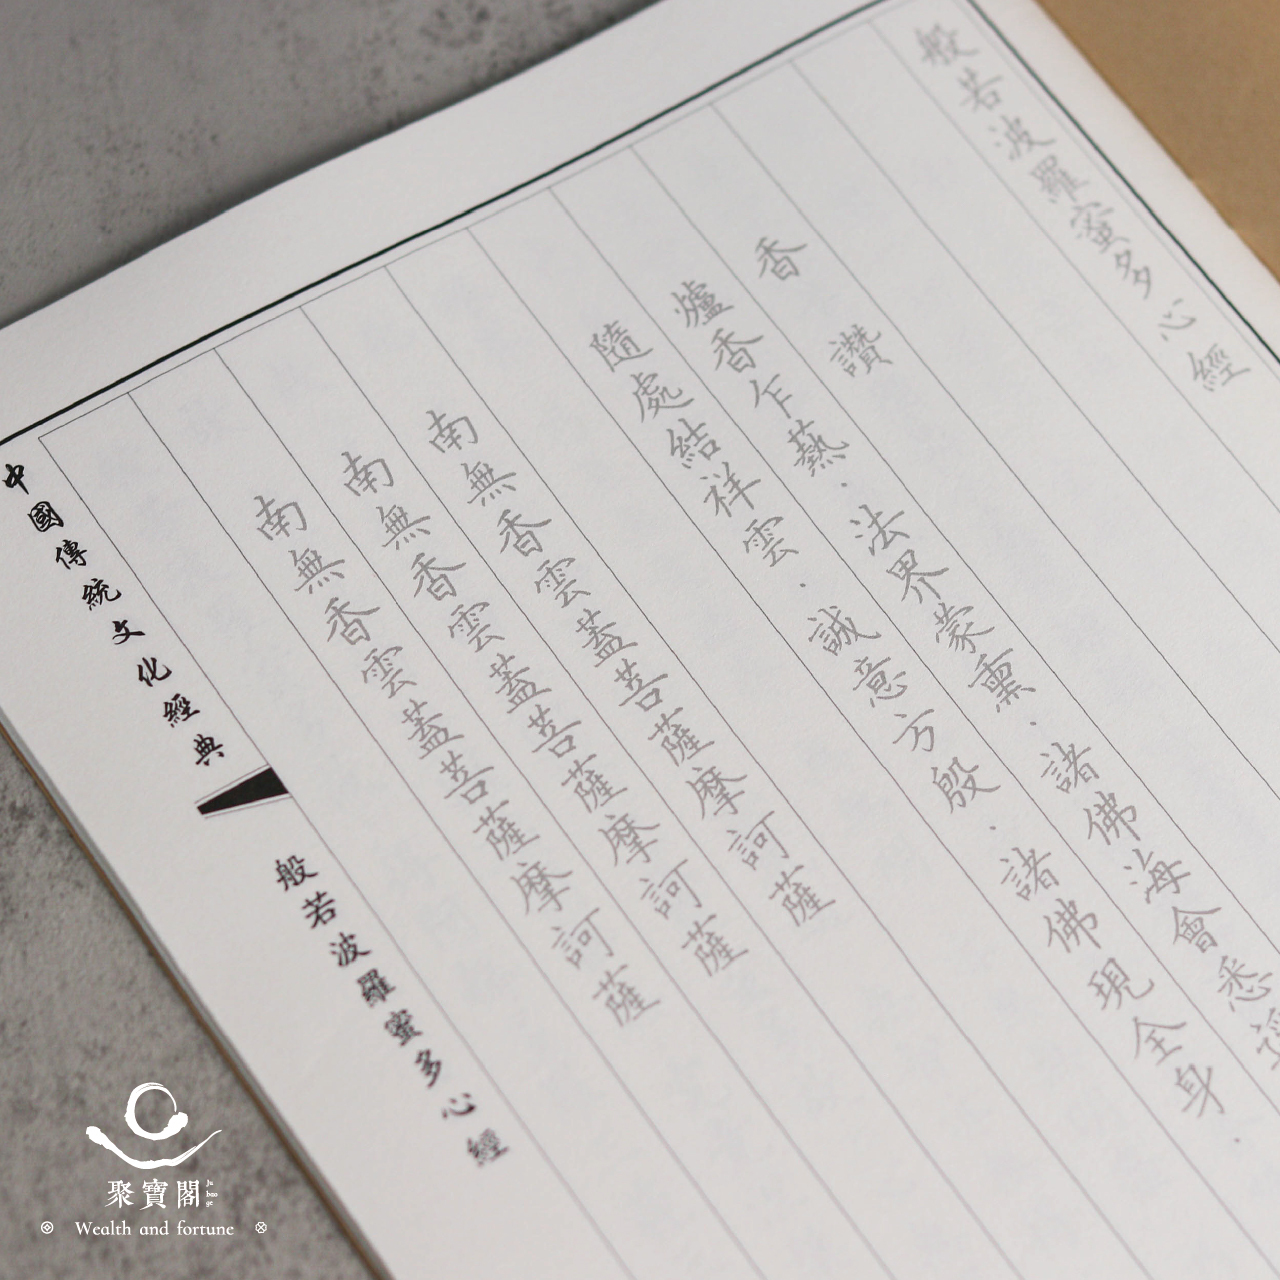 般若波羅蜜多心經
香讚
爐香乍爇．法界蒙熏．諸佛海會悉
隨處結祥雲．誠意方殷．諸佛現全身．
南無香雲蓋菩薩摩訶薩
南無香雲蓋菩薩摩訶薩
南無香雲蓋菩薩摩訶薩
中國傳統文化經典
般若波羅蜜多心經
聚寶閣
Ju bao ge
Wealth and fortune